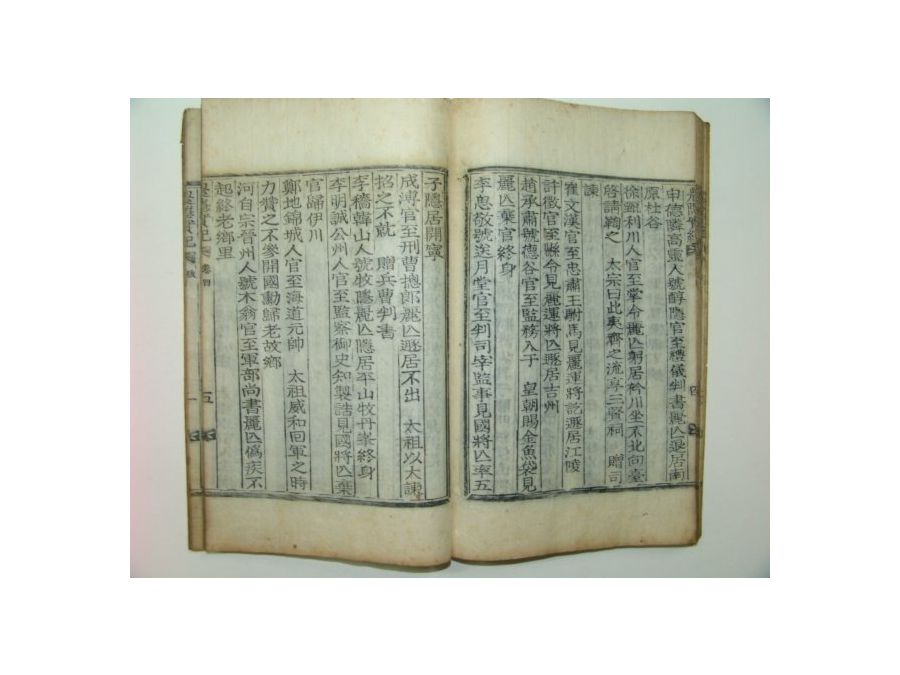 申德隣高靈人號醇隱官至禮儀判書麗亾退居南
原杜谷
徐甄利川人官至掌令麗亾躬居衿川坐不北向臺
啓請鞫之 太宗曰此夷齊之流享三賢祠 贈司
諫
崔文漢官至忠肅王駙馬見麗運將訖遯居江陵
許徵官至縣令見麗運將亾遯居吉州
趙承肅號德谷官至監務入于 皇朝賜金魚袋見
麗亾棄官終身
李思敬號送月堂官至判司宰監事見國將亾率五
子隱居開寧
成溥官至刑曹摠郎麗亾遯居不出 太祖以大諫
招之不就 贈兵曹判書
李穡韓山人號牧隱麗亾隱居平山牧丹峯終身
李明誠公州人官至監察御史知製誥見國將亾棄
官歸伊川
鄭地錦城人官至海道元帥 太祖威和回軍之時
力贊之不參開國勳歸老故鄉
河自宗晉州人號木翁官至軍部尚書麗亾僞疾不
起終老鄉里
實記 卷四 五